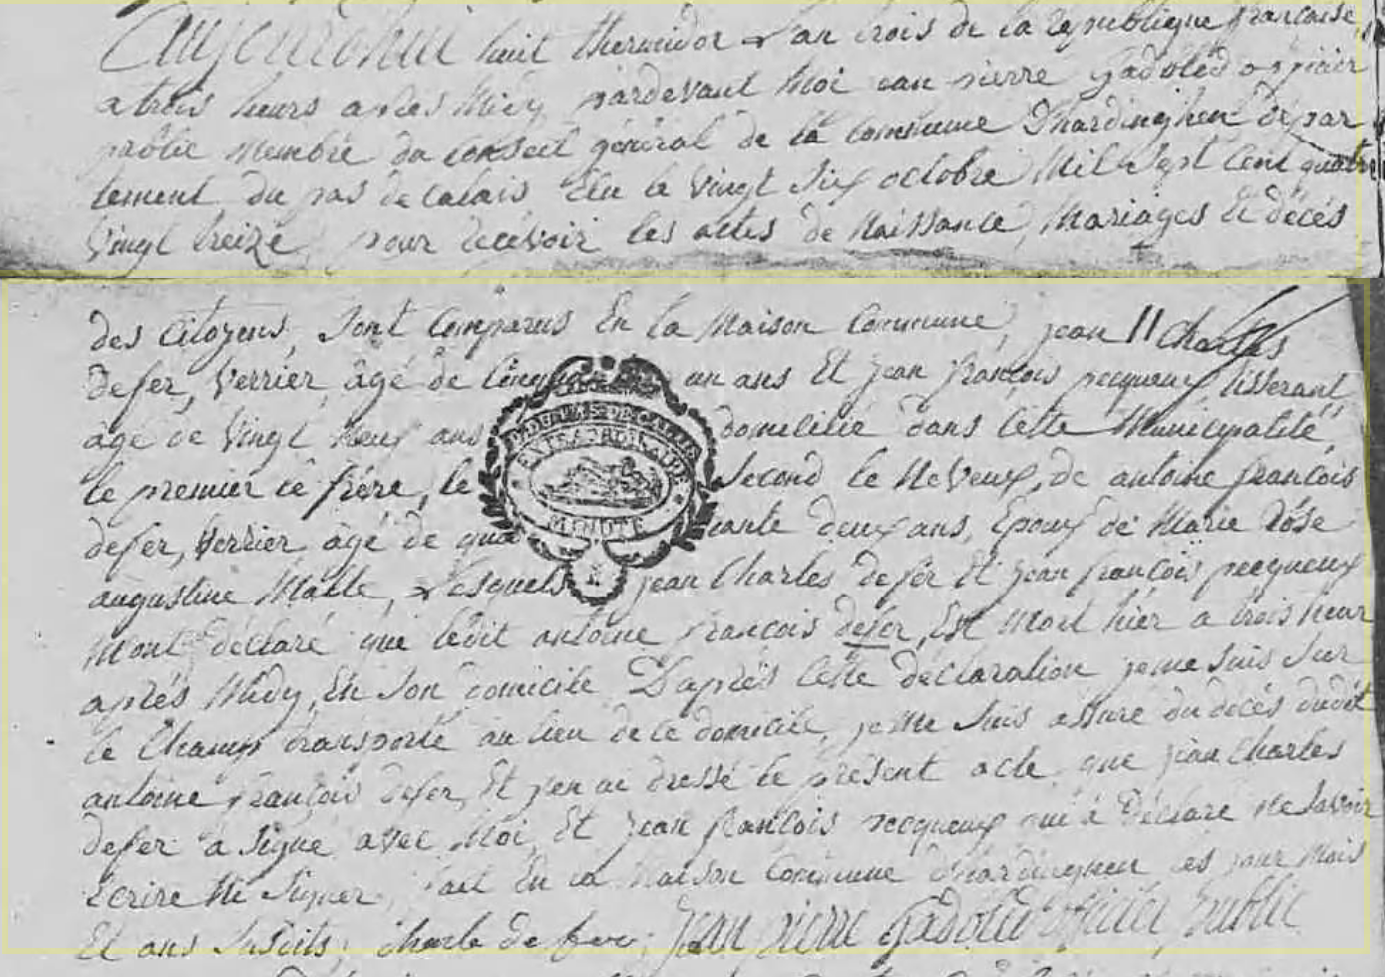 Aujourdhui huit thermidor l'an trois de la republique francaise
a trois heurs apres Midy, pardevant Moi Jean pierre Gadolèd officier
public Membre du conseil général de la commune D'hardinghen dépar
tement du pas de calais Elu le Vingt Six octobre Mil Sept Cent quatre
Vingt treize, pour recévoir les actes de Naissance, Mariages Et décés
des Citoyens, Sont Comparus En la Maison Commune, jean Charles
defer, Verrier, âgé de un ans Et jean francois pecqueux tisserant,
âgé de Vingt Neuf ans domicilié dans Cette Municipalité,
le premier le frére, le Second le Neveux, de antoine francois
defer, Verrier âgé de quarante deux ans, Epoux de Marie Rose
augustine Malle, Lesquels jean Charles defer Et jean francois pecqueux
Mont déclaré que ledit antoine francois defer, Est Mort hier a trois heur
aprés Midy, En Son domicile D'aprés Cette déclaration je me Suis Sur
le Champ transporté au lieu de ce domicile, je Me Suis assuré du decés dudit
antoine francois defer, Et j'en ai dressé le présent acte que jean Charles
defer a Signé avec Moi, Et jean francois pecqueux qui à Déclaré Ne Savoir
écrire Ni Signer, fait En la Maison Commune d'hardinghen les jour Mois
Et ans Susdits, Charle de fer Jean pierre Gadolèd officier public
EXTRAORDINAIRE
MINUTE